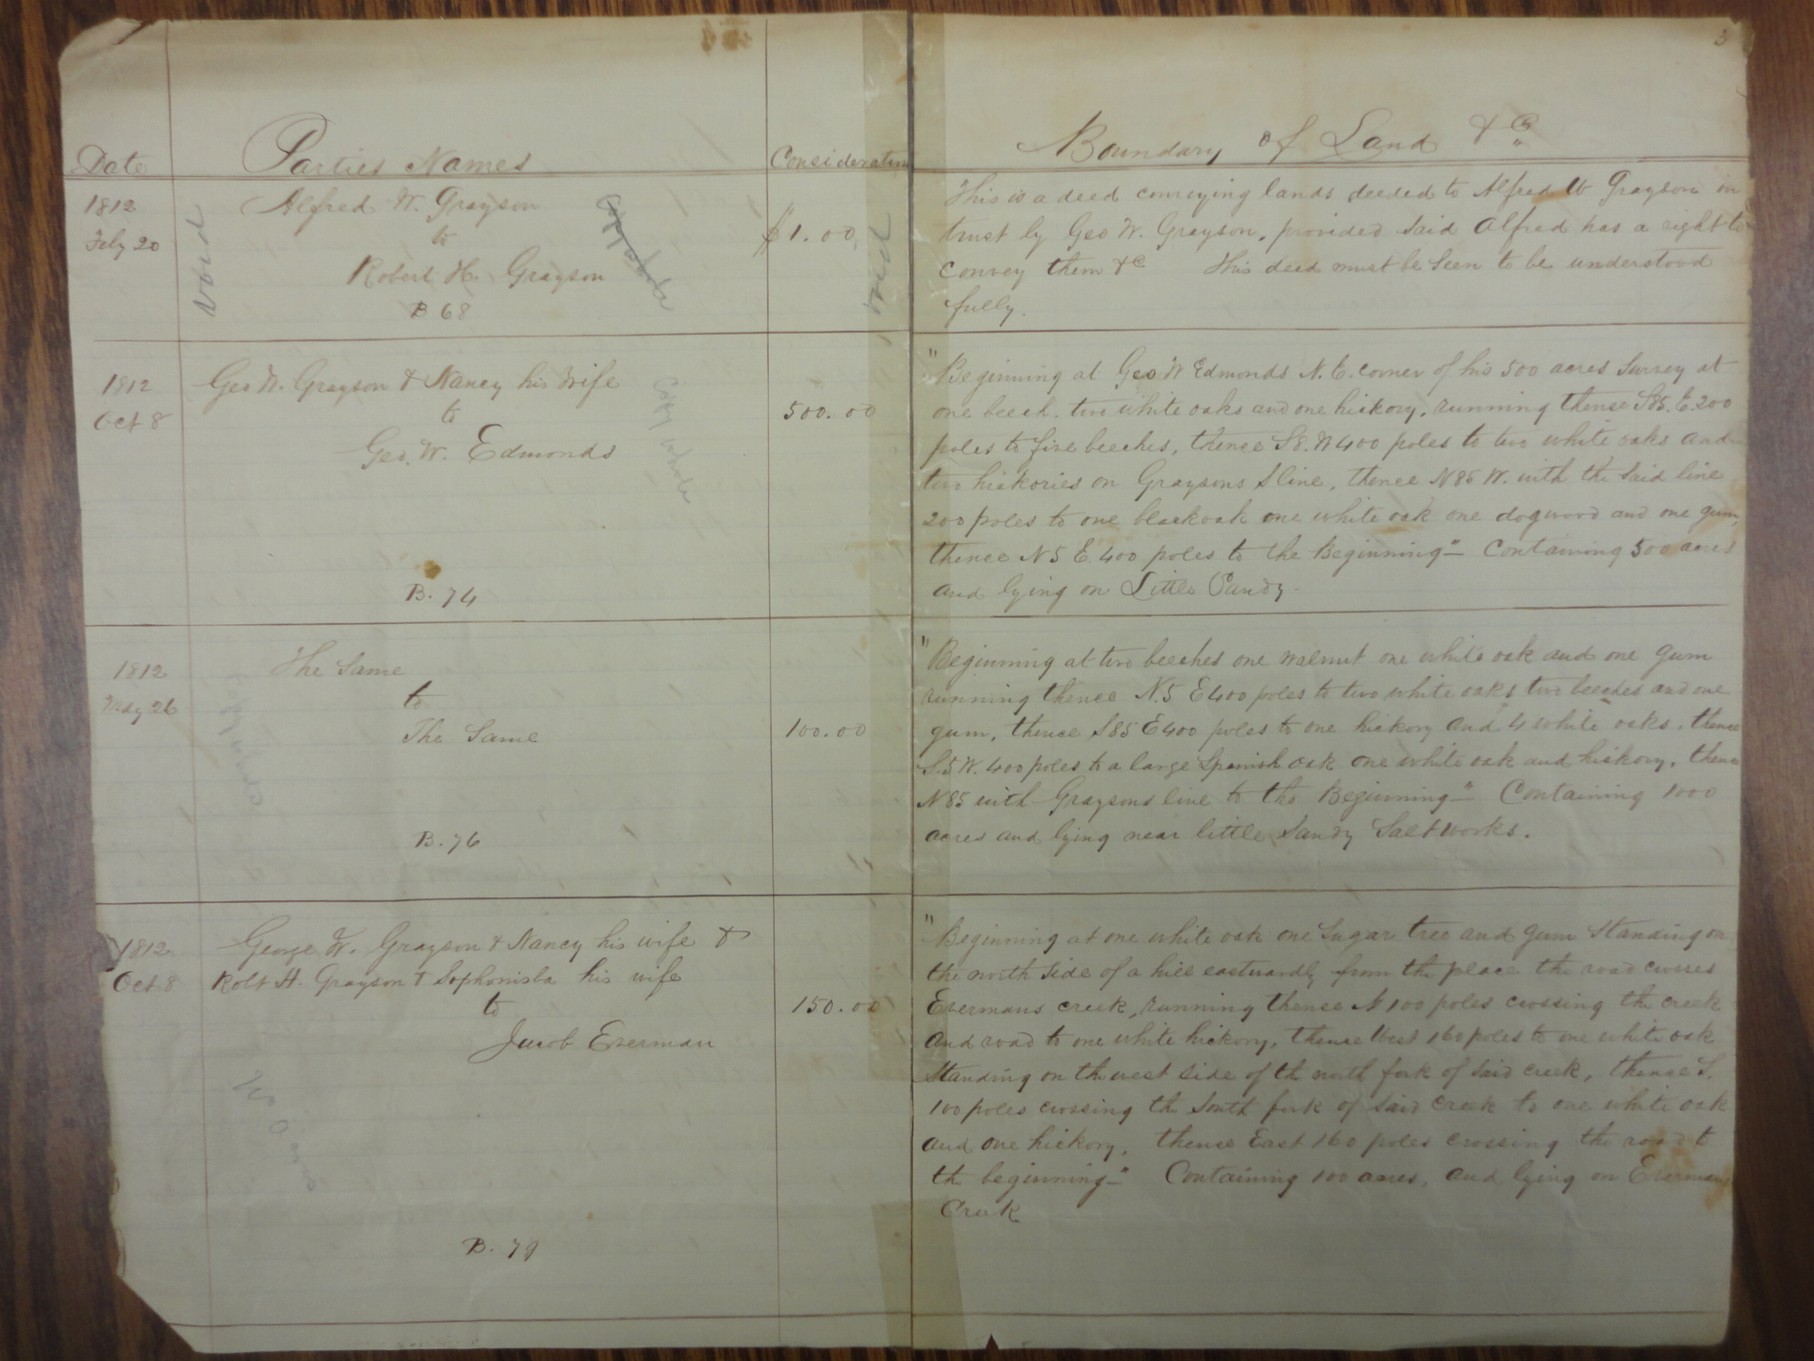 3
Date
Parties Names
Consideration
Boundary of Land &c
1812
Feby 20
Void
Alfred W. Grayson
to
Robert H. Grayson
B 68
$1.00
Void
This is a deed conveying lands deeded to Alfred W Grayson in
trust by Geo W. Grayson, provided said Alfred has a right to
convey them &c This deed must be seen to be understood
fully.
1812
Oct 8
Geo W. Grayson & Nancy his wife
to
Geo. W. Edmonds
B. 74
Copy whole
500.00
"Beginning at Geo W Edmonds N.E. corner of his 500 acres Survey at
one beech, two white oaks and one hickory, running thense S85. E. 200
poles to five beeches, thence S8. W 400 poles to two white oaks and
two hickories on Graysons line, thence N85 W. with the said line
200 poles to one blackoak one white oak one dogwood and one gum,
thence N5 E 400 poles to the Beginning" Containing 500 acres
and lying on Little Sandy.
1812
May 26
The Same
to
The Same
B. 76
100.00
"Beginning at two beeches one walnut one white oak and one gum
running thence N.5 E 400 poles to two white oaks two beeches and one
gum, thence S85 E 400 poles to one hickory and 4 white oaks, thence
S.5 W. 400 poles to a large Spanish oak one white oak and hickory, thence
N85 with Graysons line to the Beginning" Containing 1000
acres and lying near little Sandy Saltworks.
1812
Oct 8
George W. Grayson & Nancy his wife &
Robt H. Grayson & Sophonisba his wife
to
Jacob Everman
B. 79
150.00
"Beginning at one white oak one Sugar tree and gum Standing on
the north side of a hill eastwardly from the place the road crosses
Evermans creek, running thense N 100 poles crossing the creek
and road to one white hickory, thense West 160 poles to one white oak
Standing on the west side of th north fork of said creek, thence S.
100 poles crossing th South fork of said creek to one white oak
and one hickory, thense East 160 poles crossing the road to
th beginning" Containing 100 acres, and lying on Evermans
Creek